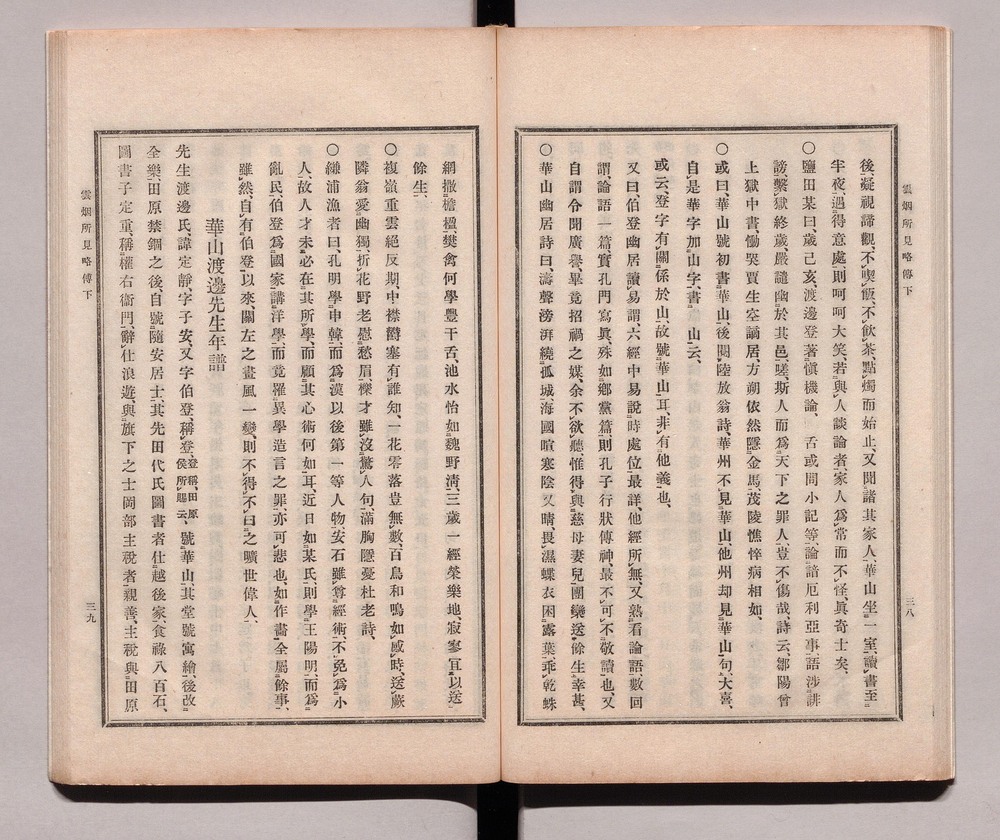 雲烟所見略傳下
三八
後、凝視諦觀、不喫飯、不飲茶、點燭而始止、又聞諸其家人、華山坐一室、讀書至
半夜、遇得意處、則呵呵大笑、若與人談論者、家人爲常而不怪、眞奇士矣、
〇鹽田某曰、歲己亥、渡邊登著愼機論、舌或問小記等、論諳厄利亞事、語涉誹
謗、繫獄終歲、嚴譴幽於其邑、嗟斯人而爲天下之罪人、豈不傷哉、詩云、鄒陽曾
上獄中書、慟哭賈生空謫居、方朔依然隱金馬、茂陵憔悴病相如、
〇或曰、華山號初書華山、後閱陸放翁詩、華州不見華山、他州却見華山句、大喜、
自是華字加山字、書山云、
或云、登字有關係於山、故號華山耳、非有他義也、
又曰伯登幽居讀易、謂、六經中易說時處位最詳、他經所無、又熟看論語數回
謂、論語一篇、實孔門寫眞、殊如鄕黨篇、則孔子行狀傳神、最不可不敬讀也、又
自謂令聞廣譽、畢竟招禍之媒、余不欲聽、惟得與慈母妻兒團欒送餘生幸甚、
〇華山幽居詩曰、濤聲滂湃繞孤城、海國暄寒陰又晴、畏濕蝶衣困露、葉乖乾蛛
網撒檐楹、樊禽何學豐干舌、池水恰如魏野淸、三歲一經榮樂地、寂寥宜以送
餘生、
〇複嶺重雲絕反期、中襟欝塞有誰知、一花零落豈無數、百鳥和鳴如感時、送蕨
隣翁愛幽獨、折花野老慰愁眉、櫟才雖沒驚人句、滿胸隱憂杜老詩、
〇縑浦漁者曰、孔明學申韓、而爲漢以後第一等人物、安石雖尊經術、不免爲小
人、故人才未必在其所學、而顧其心術何如耳、近日如某氏、則學王陽明、而爲
亂民、伯登爲國家講洋學、而竟罹異學造言之罪、亦可悲也、如作畵、全屬餘事、
雖然、自有伯登以來、關左之畫風一變、則不得不曰之曠世偉人、
華山渡邊先生年譜
先生渡邊氏、諱定靜、字子安、又字伯登、稱登、登稱田原侯所賜云、號華山、其堂號寓繪、後改
全樂、田原禁錮之後、自號隨安居士、其先田代氏圖書者、仕越後家、食祿八百石、
圖書子定重、稱權右衞門、辭仕浪遊、與旗下之士岡部主稅者親善、主稅與田原
雲烟所見略傳下
三九